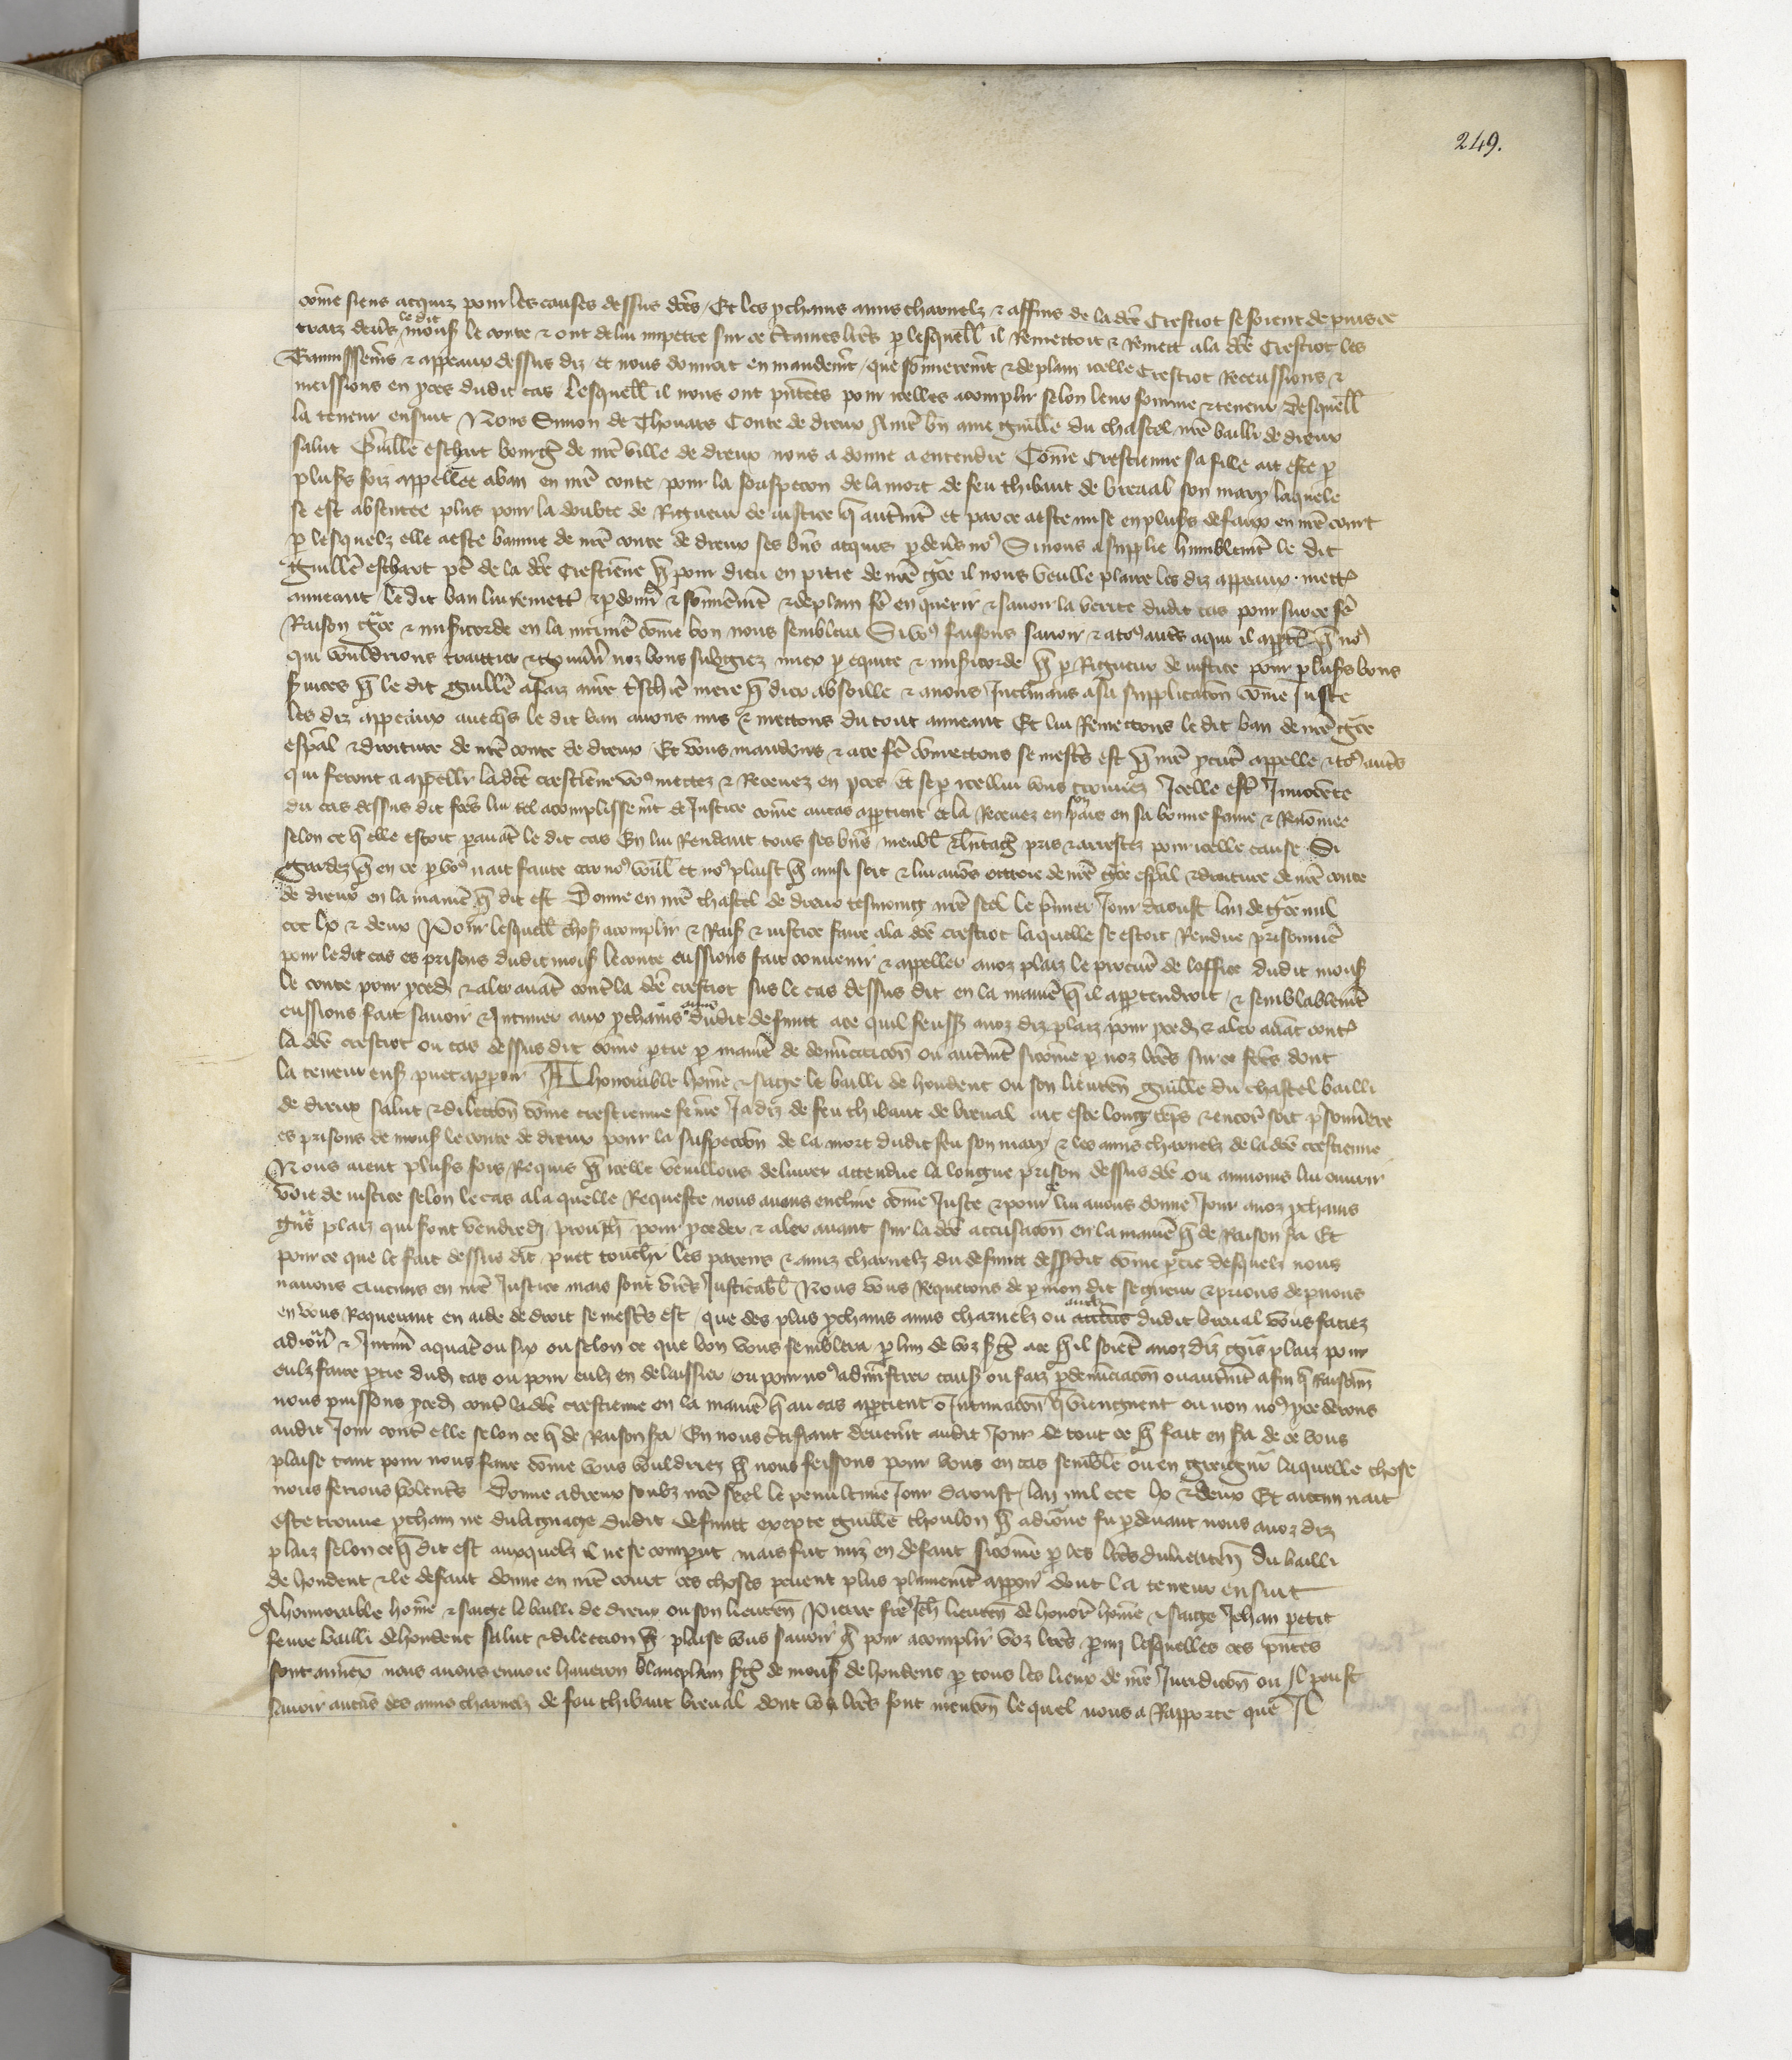 249.
come siens acquiz pour les causes dessus dcēs / Et les ꝓchains amis charnelz & affins de la dcē Crestiot se soient depuis ce
traiz devs le dit mons̄ le conte & ont de lui impetre sur ce c̄taines lr̄es ꝑ lesquell̄ il Remettoit & remett a la dcē Crestiot les
Bannissem̄s & appeaux dessus diz et nous donnoit en mandem̄t / que som̄ierem̄t & de plain icelle Crestiot Receussions &
meissions en ꝓces dudit cas Lesquell̄ il nous ont pn̄tees pour icelles acomplir selon leur fourme & teneur Desquell̄
la teneur ensuit Nous Simon de Thouars Conte de dreux A nr̄e bn̄ ame guill̄e du chastel nr̄e bailli de dreux
salut Guill̄e eschart bourḡ de nr̄e ville de dreux nous a donne a entendre Com̄e Crestienne sa fille ait este ꝑ
plus̄s foiz appellee a ban en nr̄e conte pour la souspecon de la mort de feu thibaut de breval son mary laquele
se est absentee plus pour la doubte de Rigueur de justice q̄ autrem̄t et par ce a este mise en plus̄s defaux en nr̄e court
ꝑ lesquelz elle a este bannie de nr̄e conte de dreux ses bn̄s acquis ꝑ devs noꝰ Si nous a supplie humblem̄t le dit
guill̄e eschart pē de la dcē Crestien̄e q̄ pour dieu en pitie de nr̄e gr̄ce il nous veulle plaire les diz appeaux mettr̄
anneant le dit ban lui remettr̄ & ꝑdonn̄ & som̄erem̄t & de plain fē enquerir & savoir la verite dudit cas pour sur ce fē
Raison gr̄ce & mis̄icorde en la maniē com̄e bon nous semblera Si voꝰ faisons savoir & a toꝰ autr̄s a qui il app̄tēt q̄ noꝰ
qui vouldrions traittier & gouvern̄ noz bons subgiez miex ꝑ equite & mis̄icorde q̄ ꝑ Rigueur de justice pour plus̄s bons
s̄vices q̄ le dit guill̄e a faiz a nr̄e tresch̄e mere q̄ diex absoille & avons Inclinans a sa supplicacōn com̄e Juste
les diz appeaux avecq̄s le dit ban avons mis & mettons du tout anneant Et lui Remettons le dit ban de nr̄e gr̄ce
esp̄al & droiture de nr̄e conte de dreux Et vous mandons & a ce fē com̄ettons se mest̄s est q̄ nr̄e ꝓcur̄ appelle & toꝰ autr̄s
qui feront a appeller ladcē crestien̄e voꝰ mettez & Recevez en ꝓces Et se ꝑ icellui vous trouvez Icelle estr̄ Innocente
du cas dessus dit fcēs lui tel acomplissem̄t de Justice com̄e au cas app̄tient et la Recevez en son paīs en sa bonne fame & Renom̄ee
selon ce q̄ elle estoit ꝑ avāt le dit cas En lui Rendant tous ses bn̄s meubl̄ & h̄itaḡ pris & arrestez pour icelle cause Si
gardez q̄ en ce ꝑ voꝰ nait faute car noꝰ voul̄ et noꝰ plaist q̄ ainsi soit & lui avōs ottroie de nr̄e gr̄ce esp̄al & droiture de nr̄e conte
de dreux en la maniē q̄ dit est Donne en nr̄e chastel de dreux tesmoing nr̄e seel le pr̄mier Jour daoust lan de gr̄ce mil
ccc lx & deux Pour lesquell̄ chos̄ acomplir & Rais̄ & justice faire a la dcē crestiot laquelle se estoit Rendue prisonniē
pour ledit cas es prisons dudit mons̄ le conte eussions fait convenir & appeller a noz plaiz le procur̄ de loffice dudit mons̄
le conte pour ꝓced̄ & aler avāt cont̄ la dcē crestiot sus le cas dessus dit en la maniē q̄ il app̄tendroit & semblablem̄t
eussions fait savoir & Intimer aux ꝓchains amis dudit deffunct a ce quil feuss̄ a noz diz plaiz pour ꝓced̄ & aler avāt cont̄
la dcē crestiot ou cas dessus dit com̄e ꝑtie ꝑ maniē de denunciacōn ou autrem̄t sicom̄e ꝑ noz lr̄es sur ce fcēs dont
la teneur ens̄ puet apparoir A honorable hom̄e & sage le bailli de hondent ou son lieuten̄ guill̄e du chastel bailli
de dreux salut & dilectōn com̄e crestienne fem̄e Jadiz de feu thibaut de breval ait este long tēps & encor̄ soit pr̄sonniere
es prisons de mons̄ le conte de dreux pour la suspectōn de la mort dudit feu son mary & les amis charnelz de ladcē crestienne
Nous aient plus̄s fois Requis q̄ icelle veuillons delivrer attendue la longue prison dessus dcē ou annoins lui ouvrir
voie de justice selon le cas a la quelle Requeste nous avons encline com̄e Juste & pour ce lui avons donne Jour a noz ꝓchains
gn̄s plaiz qui sont vendredi prouch̄ pour ꝓceder & aler avant sur la dcē accusacōn en la maniē q̄ de Raison s̄ra Et
pour ce que le fait dessus dit puet touch̄r les parens & amiz charnelz du defunct dess̄dit com̄e ꝑtie desquelz nous
navons aucuns en nr̄e Justice mais sont vr̄es Justicabl̄ Nous vous Requerons de ꝑ mondit segneur & prions de ꝑ nous
en vous Requerant en aide de droit se mest̄s est / que des plus ꝓchains amis charnelz ou autr̄s dudit breval vous faciez
adjourn̄ & Intim̄ a quatr̄ ou six ou selon ce que bon vous semblera ꝑ lun de voz s̄ḡ a ce q̄ il soiēt a noz diz gn̄s plaiz pour
eulz faire ꝑtie dud̄ cas ou pour eulz en delaissier ou pour noꝰ administrer caus̄ ou faiz ꝑ denunciacōn ou autrem̄t afin q̄ Raisonn̄
nous puissons ꝓced̄ cont̄ ladcē crestienne en la maniē q̄ au cas app̄tient o Intimacōn q̄ viengnent ou non noꝰ ꝓcederons
audit Jour cont̄ elle selon ce q̄ de Raison s̄ra En nous c̄tifiant devem̄t audit Jour de tout ce q̄ fait en s̄ra de ce vous
plaise tant pour nous faire com̄e vous vouldriez q̄ nous feissons pour vous en cas semblē ou en greign̄r laquelle chose
nous ferions volent̄s Donne a dreux soubz nr̄e seel le penultime Jour daoust lan mil ccc lx & deux Et aucun nait
este trouve ꝓchain ne du lignage dudit defunct excepte guill̄e thoulon q̄ adiourne fu ꝑ devant nous a noz diz
plaiz selon ce q̄ dit est auxquelz il ne se comparut mais fut miz en defaut sicom̄e ꝑ les lr̄es du lieuten̄ du bailli
de hondent & le defaut donne en nr̄e court ces choses pevent plus plainem̄t apparoir dont la teneur ensuit
A honnorable hom̄e & saige le bailli de dreux ou son lieuten̄ Pierre fr̄e Jeh̄ lieuten̄ de honor̄ hom̄e & saige Jehan petit
fevre bailli de hondent salut & dilection q̄ plaise vous savoir q̄ pour acomplir voz lr̄es ꝑmi lesquelles ces pn̄tes
sont annex̄ nous avons envoie haveron blancplain s̄ḡ de mons̄ de hondens ꝑ tous les lieux de nr̄e Juridicōn ou Il peust
savoir aucūs des amis charnelz de feu thibaut breval dont voz lr̄es font mencōn lequel nous a Rapporte que Il